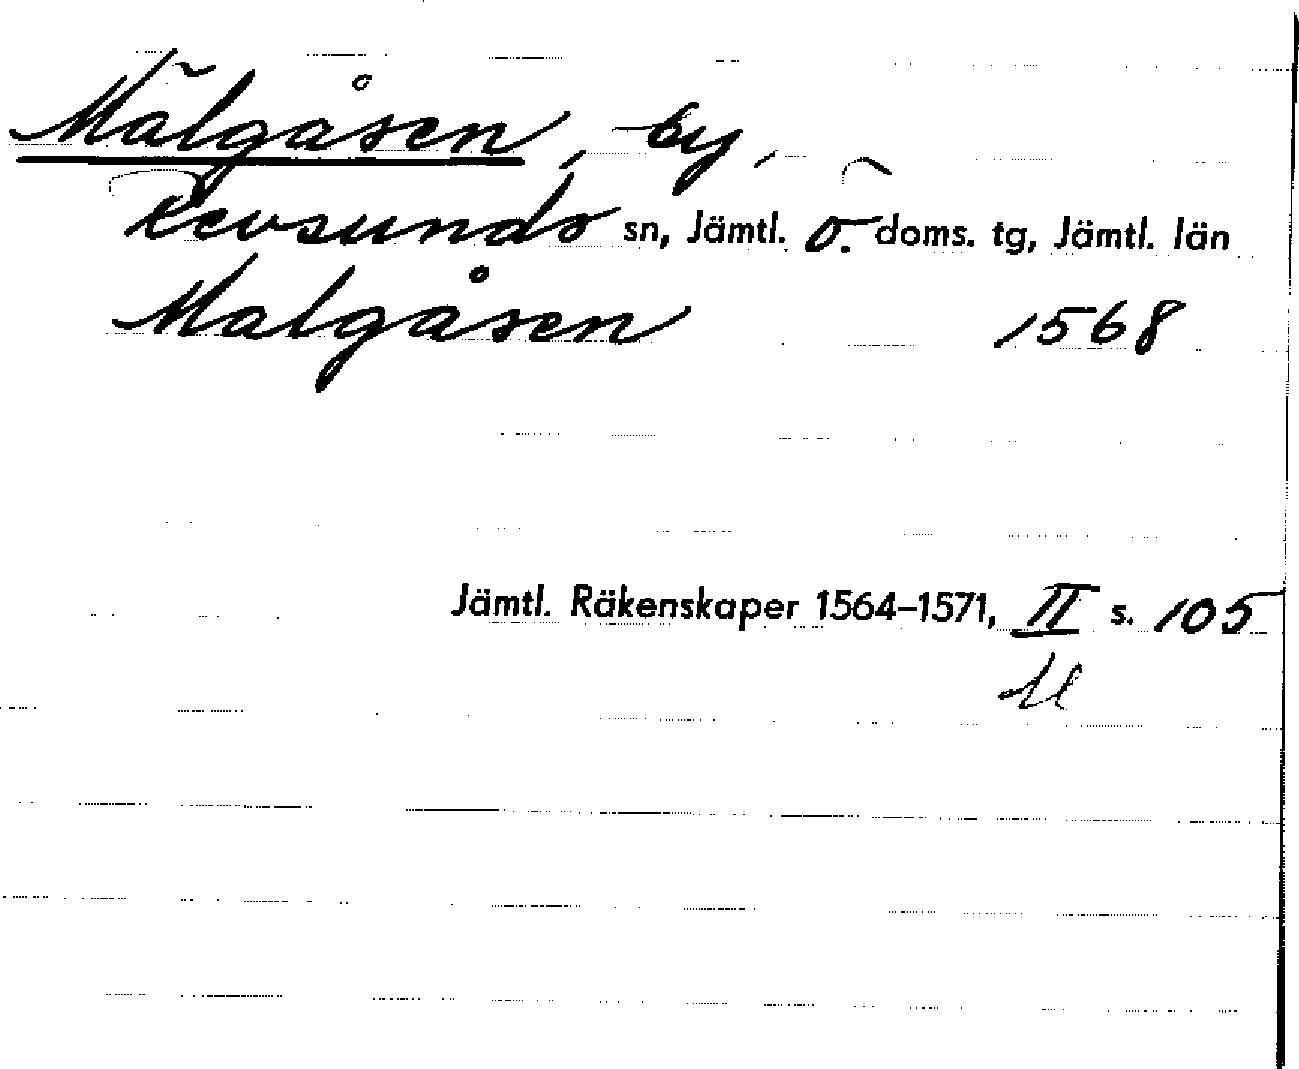 Mälgåsen, by,
Revsunds sn, Jämtl. ö. doms. tg, Jämtl. län
Malgåsen 1568
Jämtl. Räkenskaper 1564–1571, II s. 105